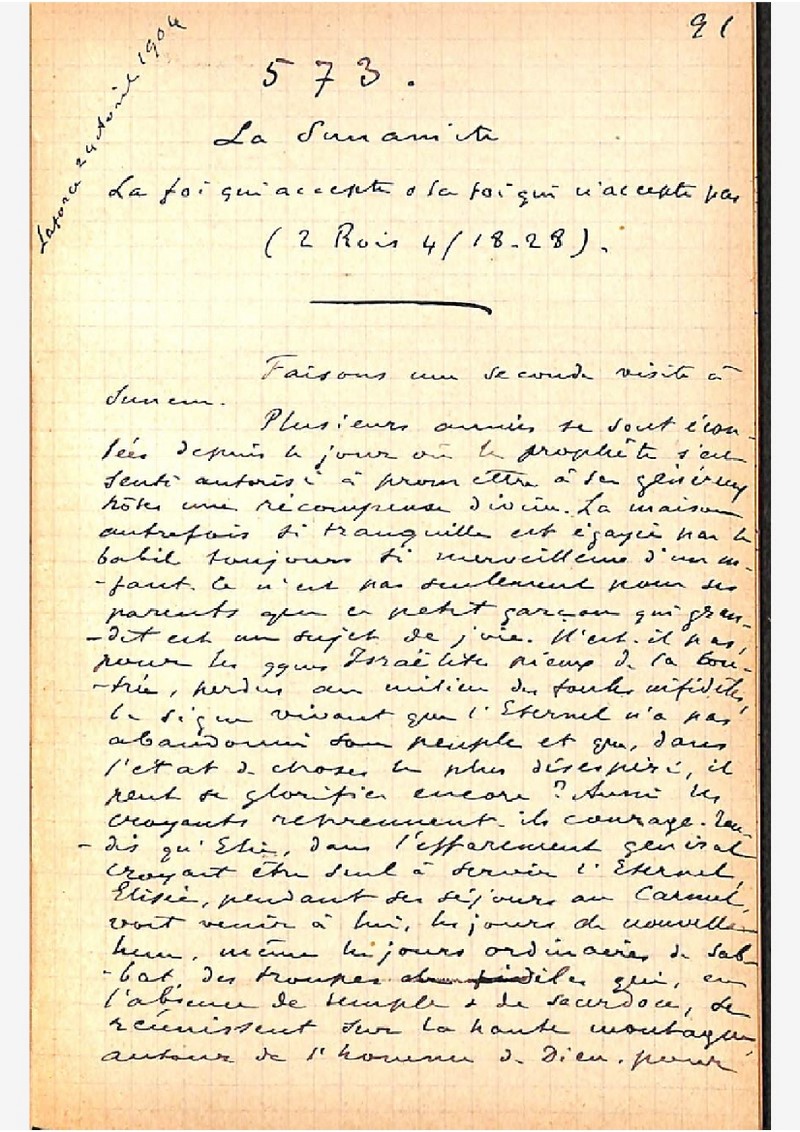 91
Laforce 24 Avril 1904
573.
La Sunamite
La foi qui accepte & la foi qui n'accepte pas
(2 Rois 4/18-28).
Faisons une seconde visite à
Sunem.
Plusieurs années se sont écou-
lées depuis le jour où le prophète s'est
senti autorisé à promettre à ses généreux
hôtes une récompense divine. La maison
autrefois si tranquille est égayée par le
babil toujours si merveilleux d'un en-
-fant. Ce n'est pas seulement pour ses
parents que ce petit garçon qui gran-
-dit est un sujet de joie. N'est-il pas,
pour les qques Israëlites pieux de la con-
-trée, perdus au milieu des foules infidèles,
le signe vivant que l'Eternel n'a pas
abandonné son peuple et que, dans
l'état de choses le plus désespéré, il
peut se glorifier encore ? Aussi les
croyants reprennent-ils courage. Tan-
-dis qu'Elie, dans l'effarement général
croyait être seul à servir l'Eternel,
Elisée, pendant ses séjours au Carmel,
voit venir à lui, les jours de nouvelle
lune, même les jours ordinaires de Sab-
-bat, des troupes de fidèles qui, en
l'absence de temple & de sacerdoce, se
réunissent sur la haute montagne,
autour de l'homme de Dieu, pour